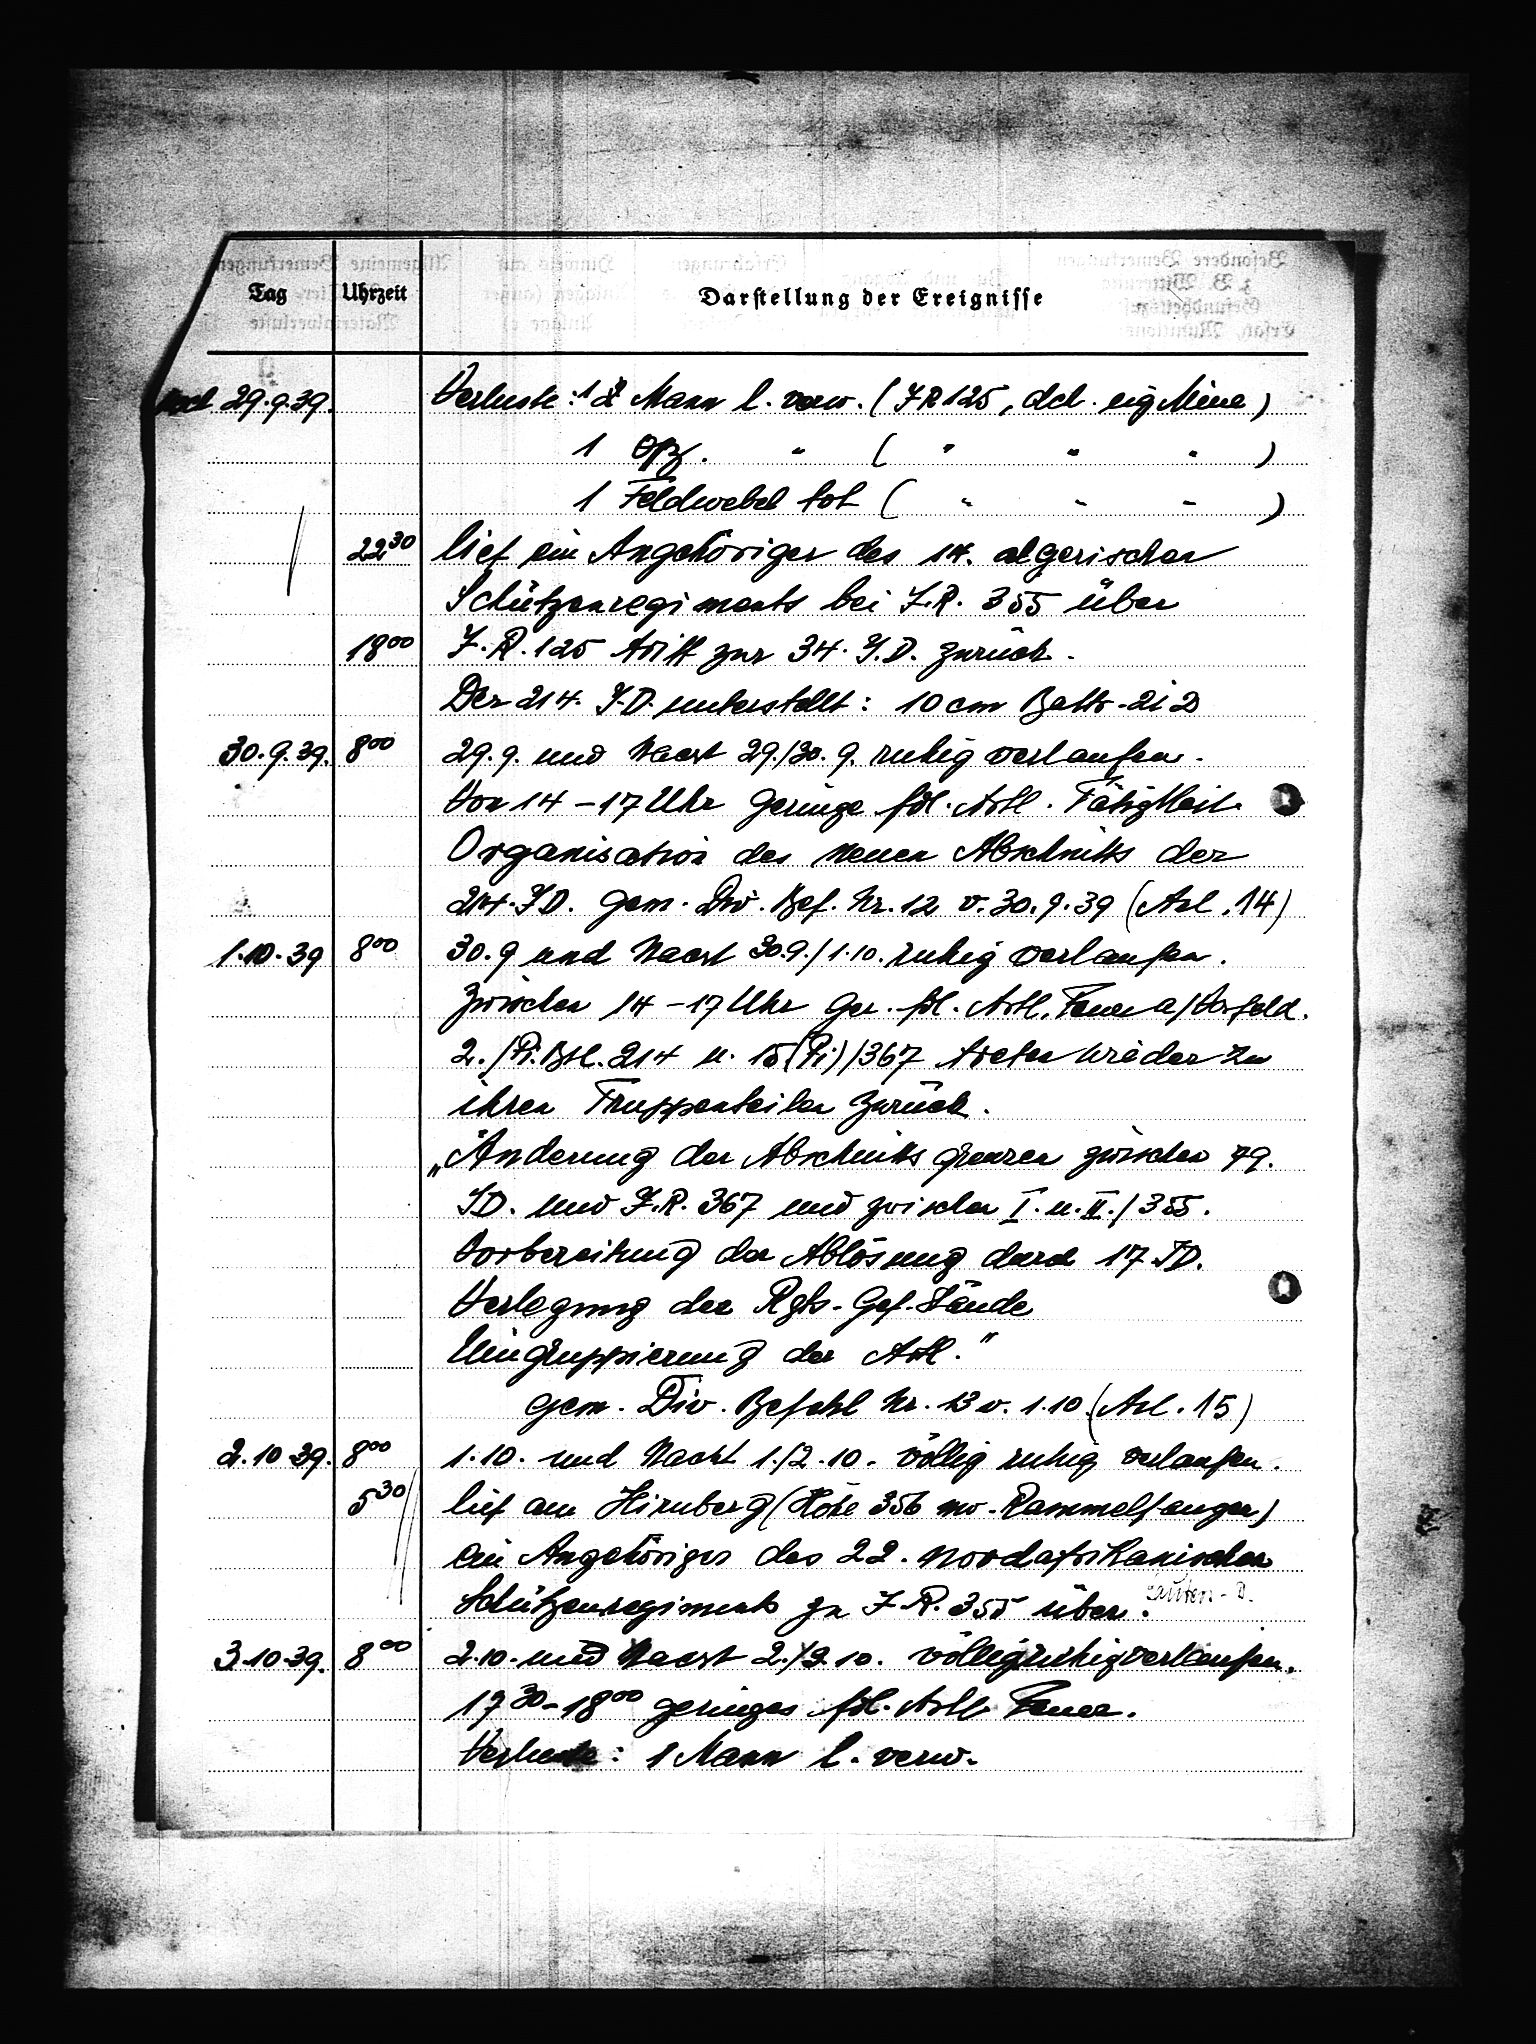 Tag Uhrzeit Darstellung der Ereignisse
noch 29.9.39. Verluste: 1 Mann l. verw. (J R 125, dch. eig Mine)
1 Offz. " ( " " " )
1 Feldwebel tot ( " " " )
22³⁰ lief ein Angehöriger des 14. algerischen
Schützenregiments bei J.R. 355 über
18⁰⁰ J.R. 125 tritt zur 34. J.D. zurück.
Der 214. J.D. unterstellt: 10 cm Battr.
30.9.39. 8⁰⁰ 29.9. und Nacht 29./30.9. ruhig verlaufen.
Von 14 - 17 Uhr geringe fdl. Artl. Tätigkeit
Organisation des neuen Abschnitts der
214. J D. gem. Div. Bef. Nr. 12 v. 30.9.39 (Anl. 14)
1.10.39 8⁰⁰ 30.9 und Nacht 30.9./1.10. ruhig verlaufen.
Zwischen 14 - 17 Uhr ger. fdl. Artl. Feuer a/Vorfeld.
2./Pi. Btl. 214 u. 15(Pi)/367 treten wieder zu
ihren Truppenteilen zurück.
„Änderung der Abschnittsgrenzen zwischen 79.
J D. und J.R. 367 und zwischen I. u. II./355.
Vorbereitung der Ablösung durch 17. J D.
Verlegung der Rgts. Gef. Stände
Umgruppierung der Artl."
gem. Div. Befehl Nr. 13 v. 1.10. (Anl. 15)
2.10.39. 8⁰⁰ 1.10. und Nacht 1./2.10. völlig ruhig verlaufen.
5³⁰ lief am Hirnberg (Höhe 356 nw. Rammelfangen)
ein Angehöriger des 22. nordafrikanischen
Schützenregiments zu J.R. 355 über.
3.10.39. 8⁰⁰ 2.10. und Nacht 2./3.10. völlig ruhig verlaufen.
17³⁰ - 18⁰⁰ geringes fdl. Artl. Feuer.
Verluste: 1 Mann l. verw.